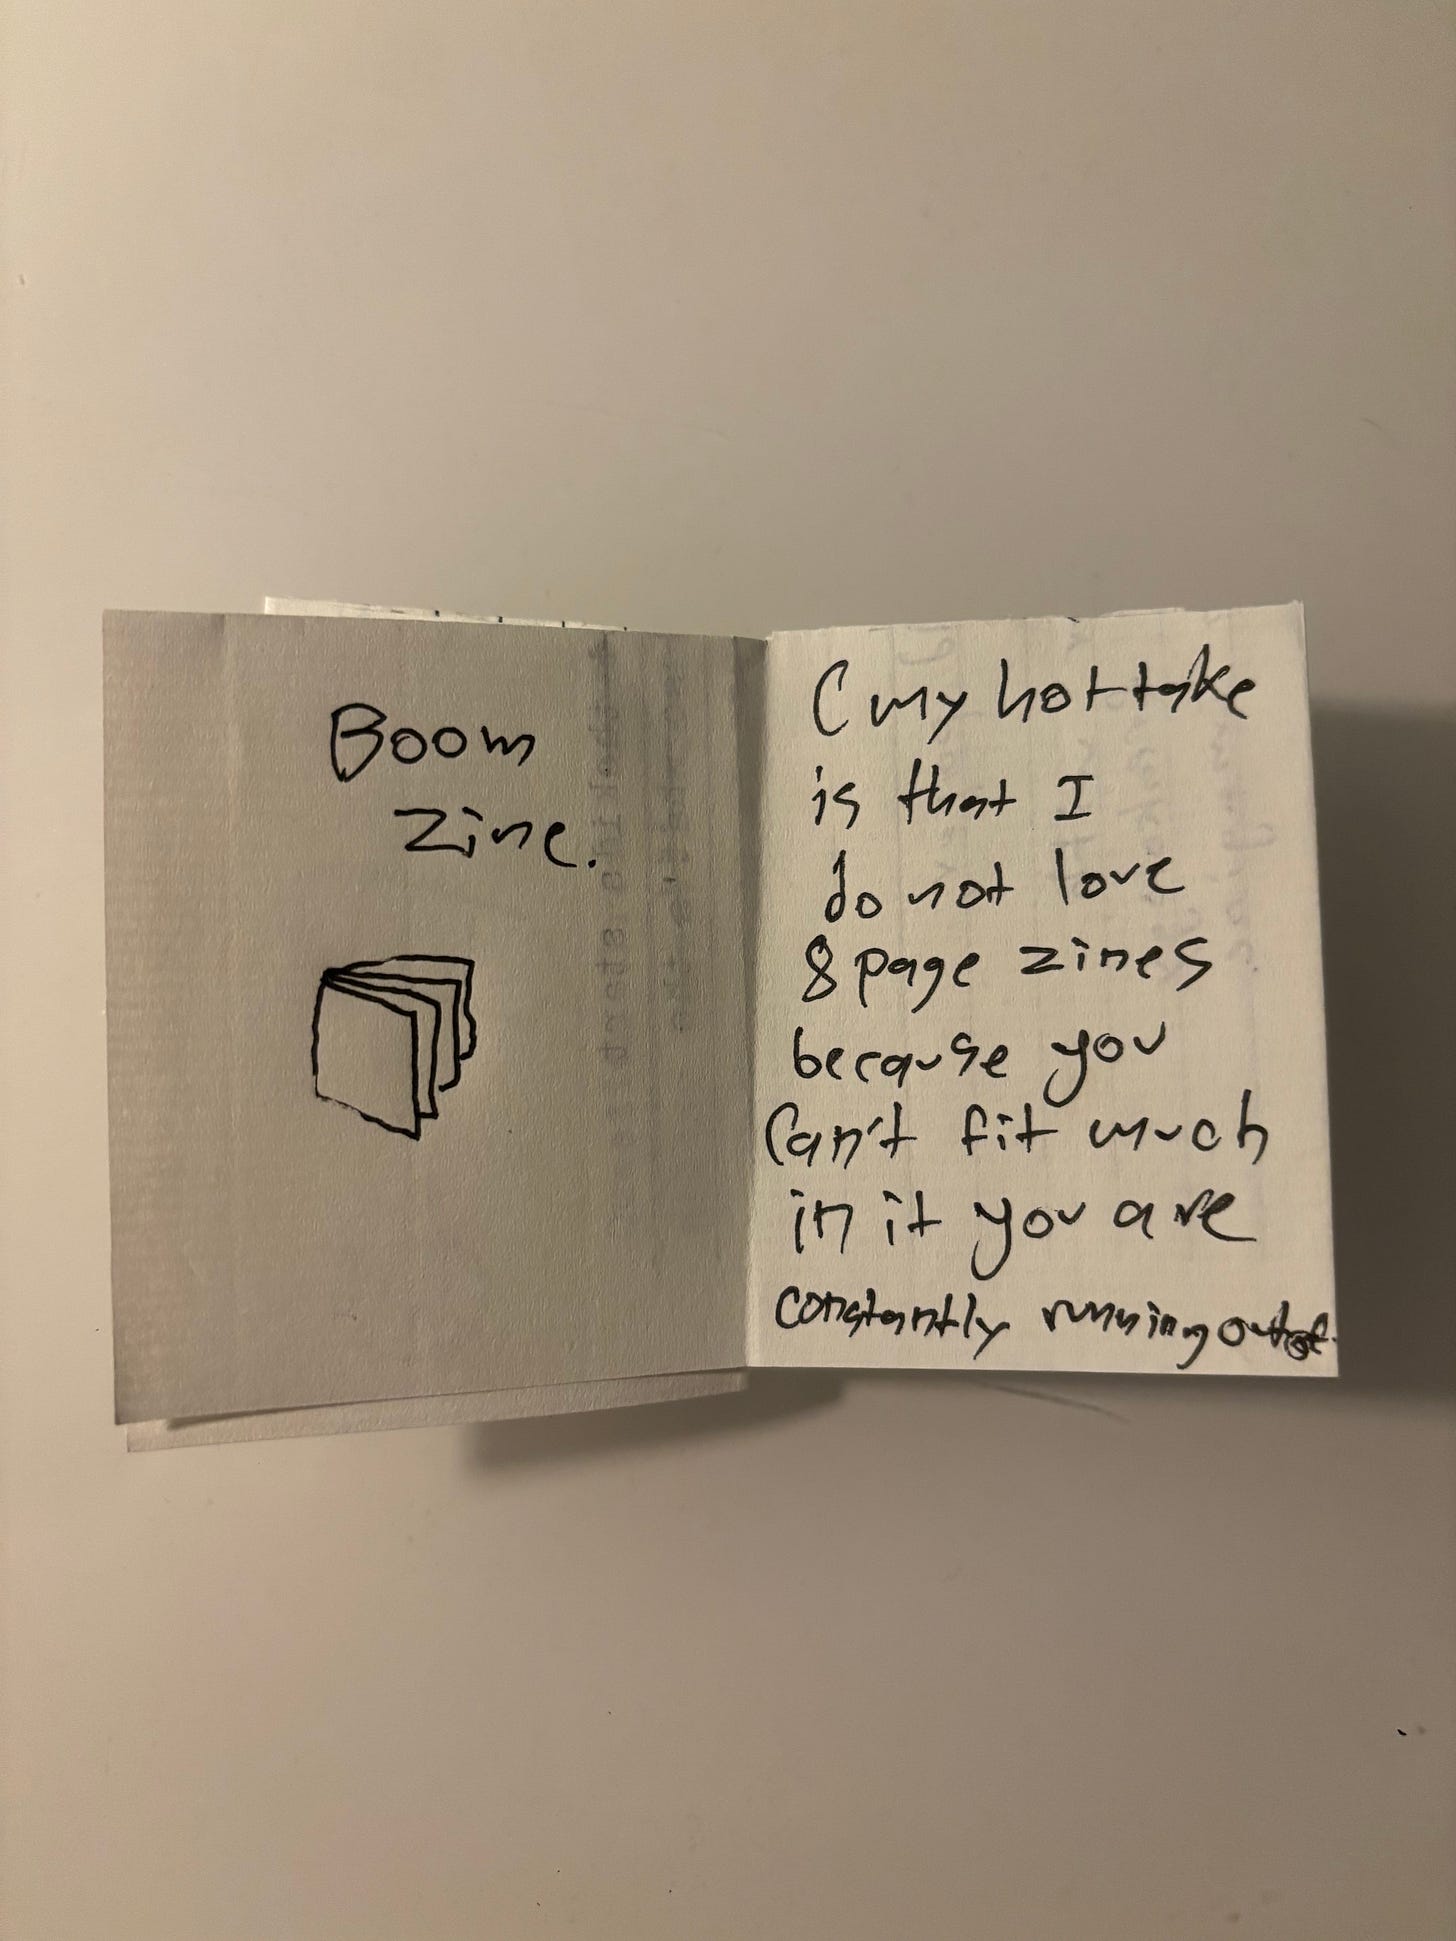 Boom
zine.
(my hot take
is that I
do not love
8 page zines
because you
can't fit much
in it you are
constantly running out of